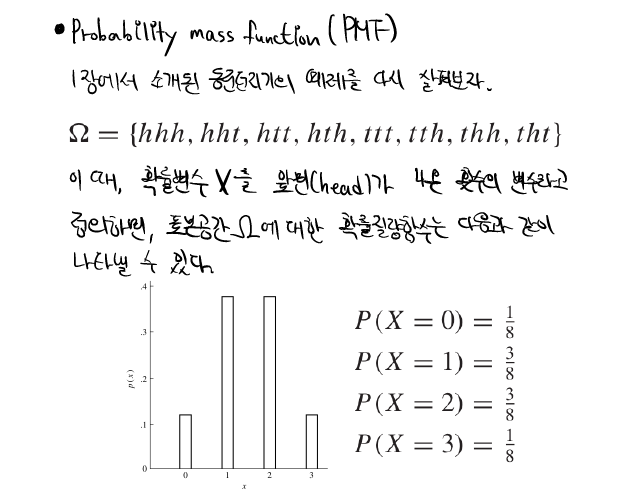 • Probability mass function (PMF)
1장에서 소개된 동전던지기의 예제를 다시 살펴보자.
Ω = {hhh, hht, htt, hth, ttt, tth, thh, tht}
이 때, 확률변수 X를 앞면(head)가 나온 횟수의 변수라고
정의하면, 표본공간 Ω에 대한 확률질량함수는 다음과 같이
나타낼 수 있다.
.4
.3
.2
.1
0
p(x)
0 1 2 3
x
P(X = 0) = 1/8
P(X = 1) = 3/8
P(X = 2) = 3/8
P(X = 3) = 1/8